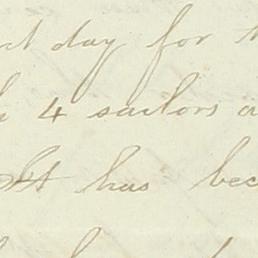 day for
4 sailors
It has bec